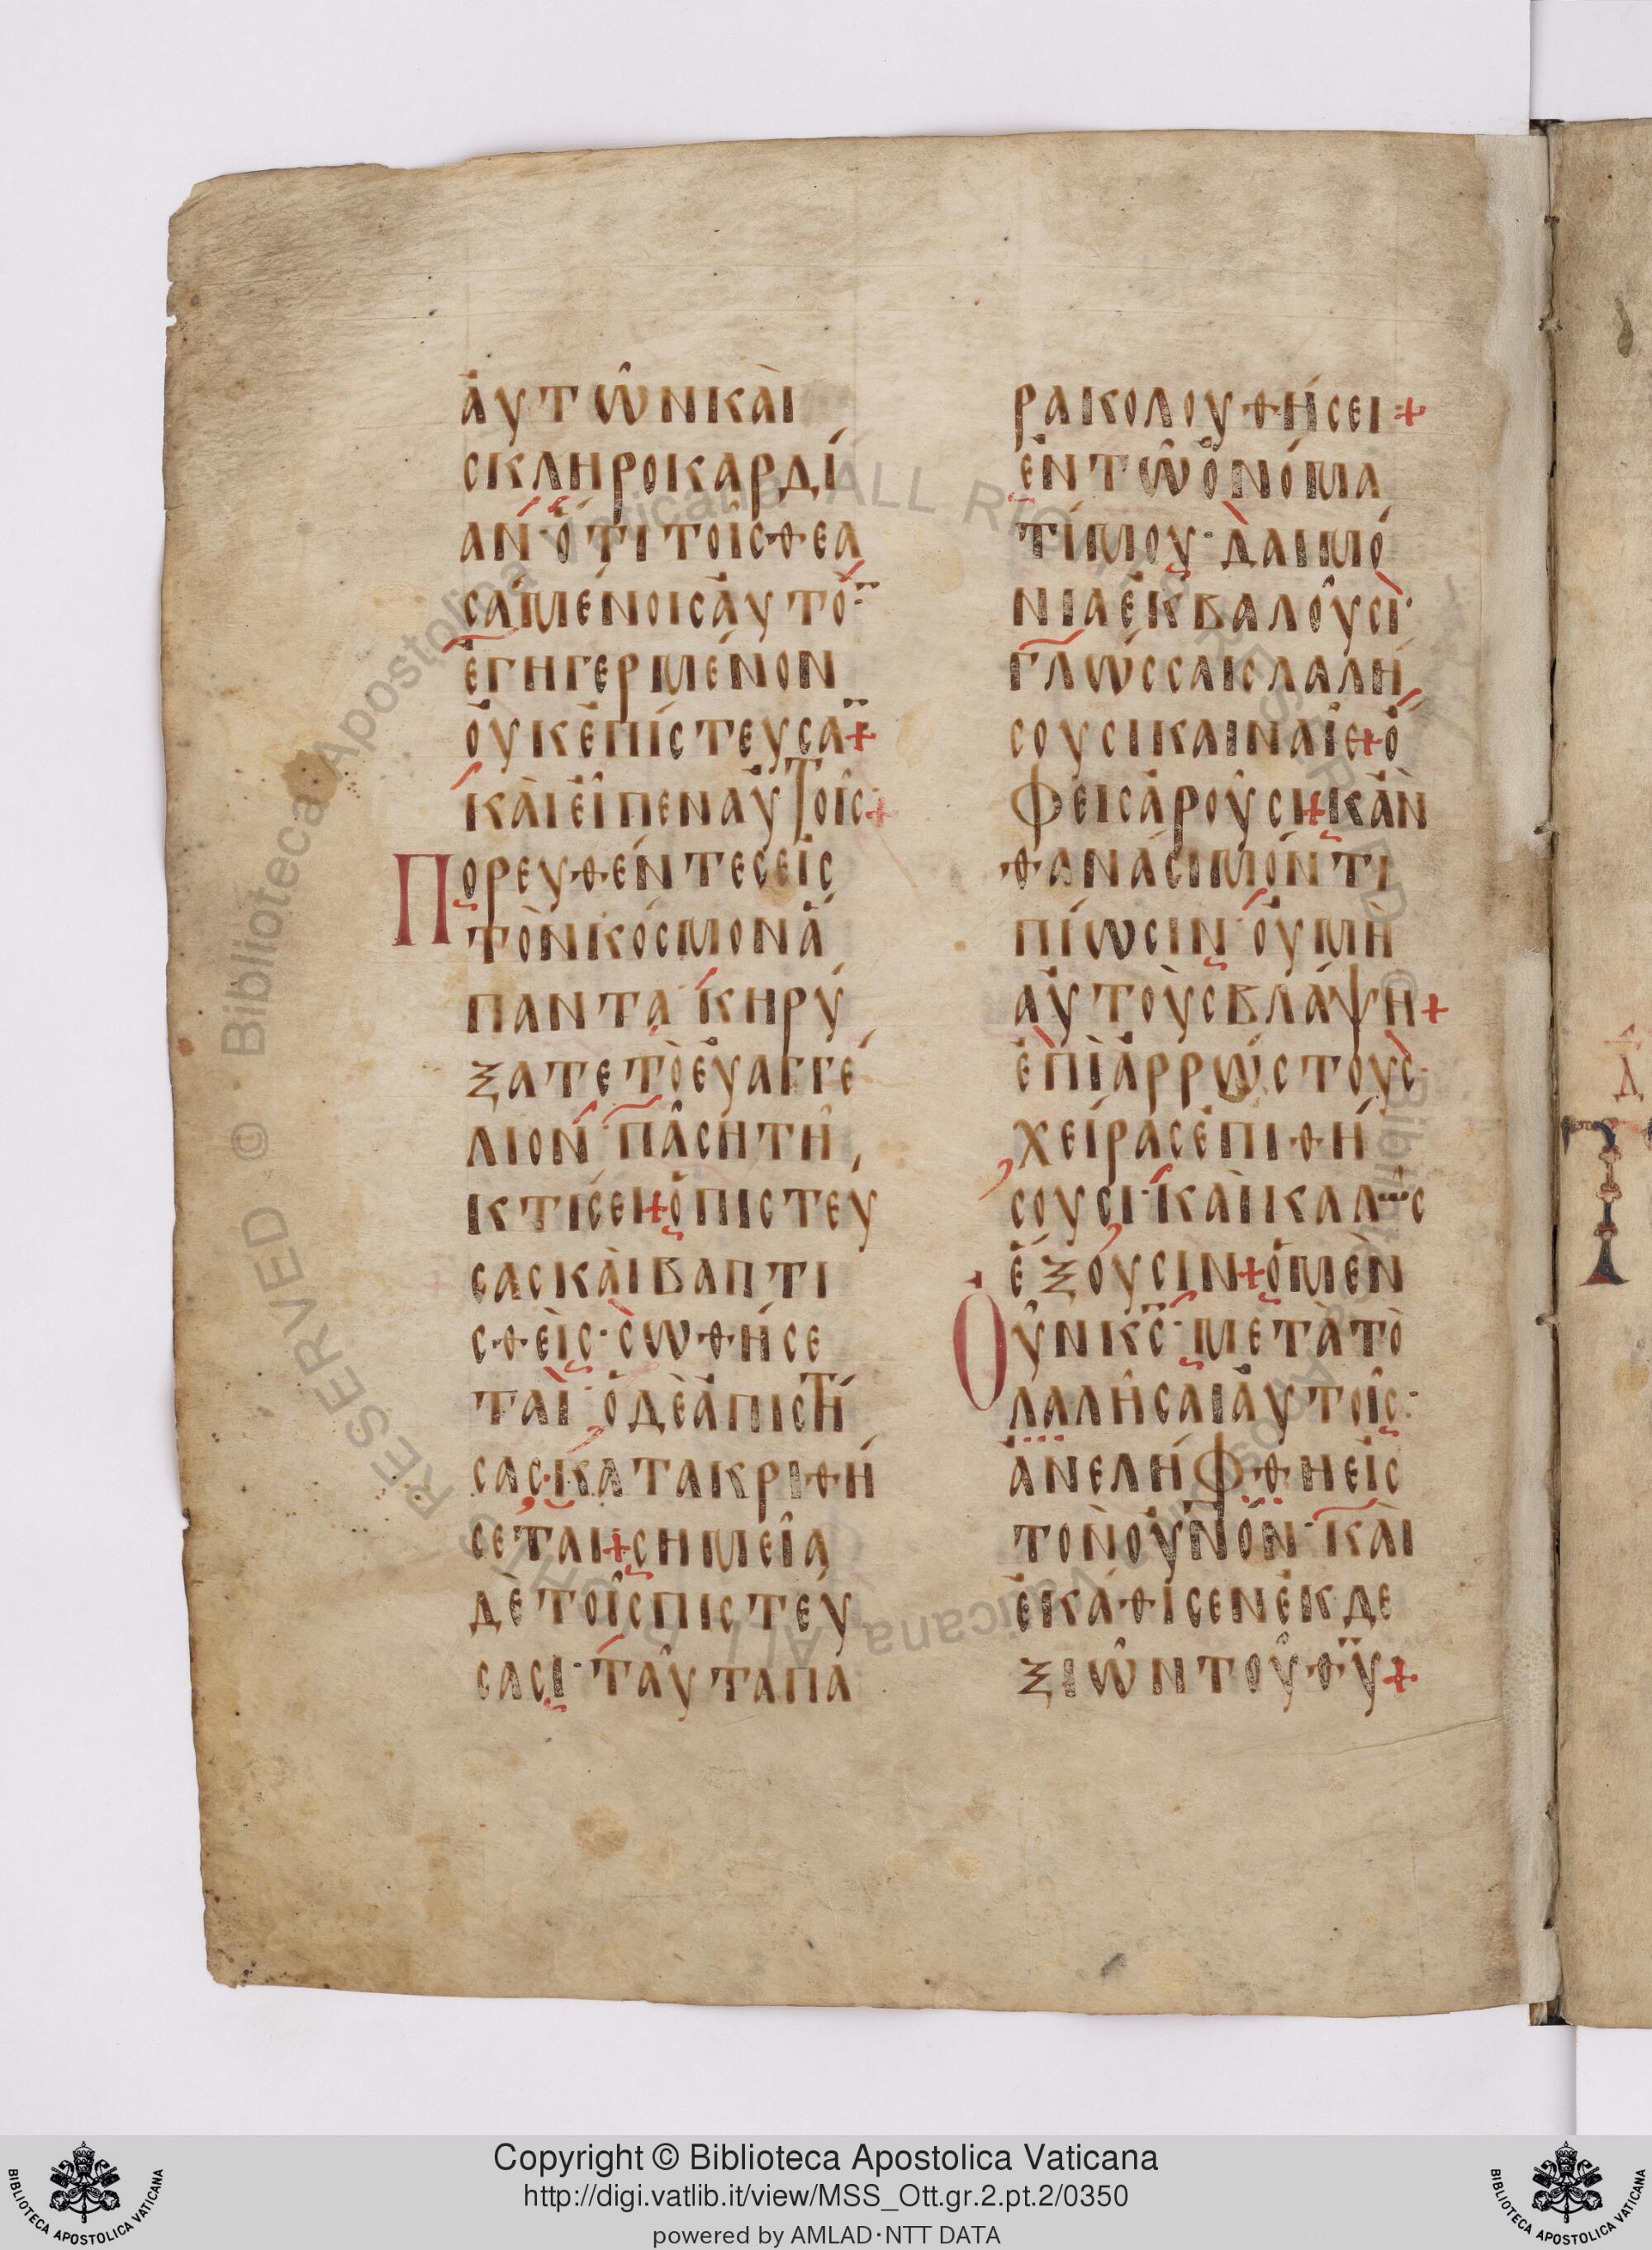 ἀυτῶνκὰι
σκληροκαρδί
αν·ὅτιτοῖσθεα
σαμένοισἀυτὸ·
ἐγηγερμένον
ὀυκἐπίστευσα+
κὰιεἶπεναὐτοῖσ+
Πορευθέντεσεἰσ
τὸνκόσμονἅ
παντα·κηρύ
ξατετὸεὐαγγέ
λιον·πάσητῆ
κτίσει+ὁπιστεύ
σασκὰιβαπτι
σθεὶσ·σωθήσε
ται·ὁδὲἀπιστή
σασ·κατακριθή
σεται+σημεῖα
δὲτοῖσπιστεύ
σασι·ταῦταπα
ρακολουθήσει+
ἐντῶὀνόμα
τίμου·δαιμό
νιαἐκβαλοῦσι·
γλώσσαισλαλή
σουσικαιναῖσ+ὄ
φεισἀροῦσι+κἂν
θανάσιμόντι
πίωσιν·ὀυμὴ
ἀυτοὺσβλάψη+
ἐπὶἀρρώστουσ·
χεῖρασἐπιθή
σουσι·κὰικαλῶσ
ἕξουσιν+ὁμὲν
Ὀῦνκσ·μετὰτὸ
λαλῆσαιἀυτοῖσ·
ἀνελήφθηεἰσ
τὸνοὐνὸν·κὰι
ἐκάθισενἐκδε
ξιῶντοῦθυ+
Copyright © Biblioteca Apostolica Vaticana
http://digi.vatlib.it/view/MSS_Ott.gr.2.pt.2/0350
powered by AMLAD·NTT DATA
BIBLIOTECA APOSTOLICA VATICANA
BIBLIOTECA APOSTOLICA VATICANA